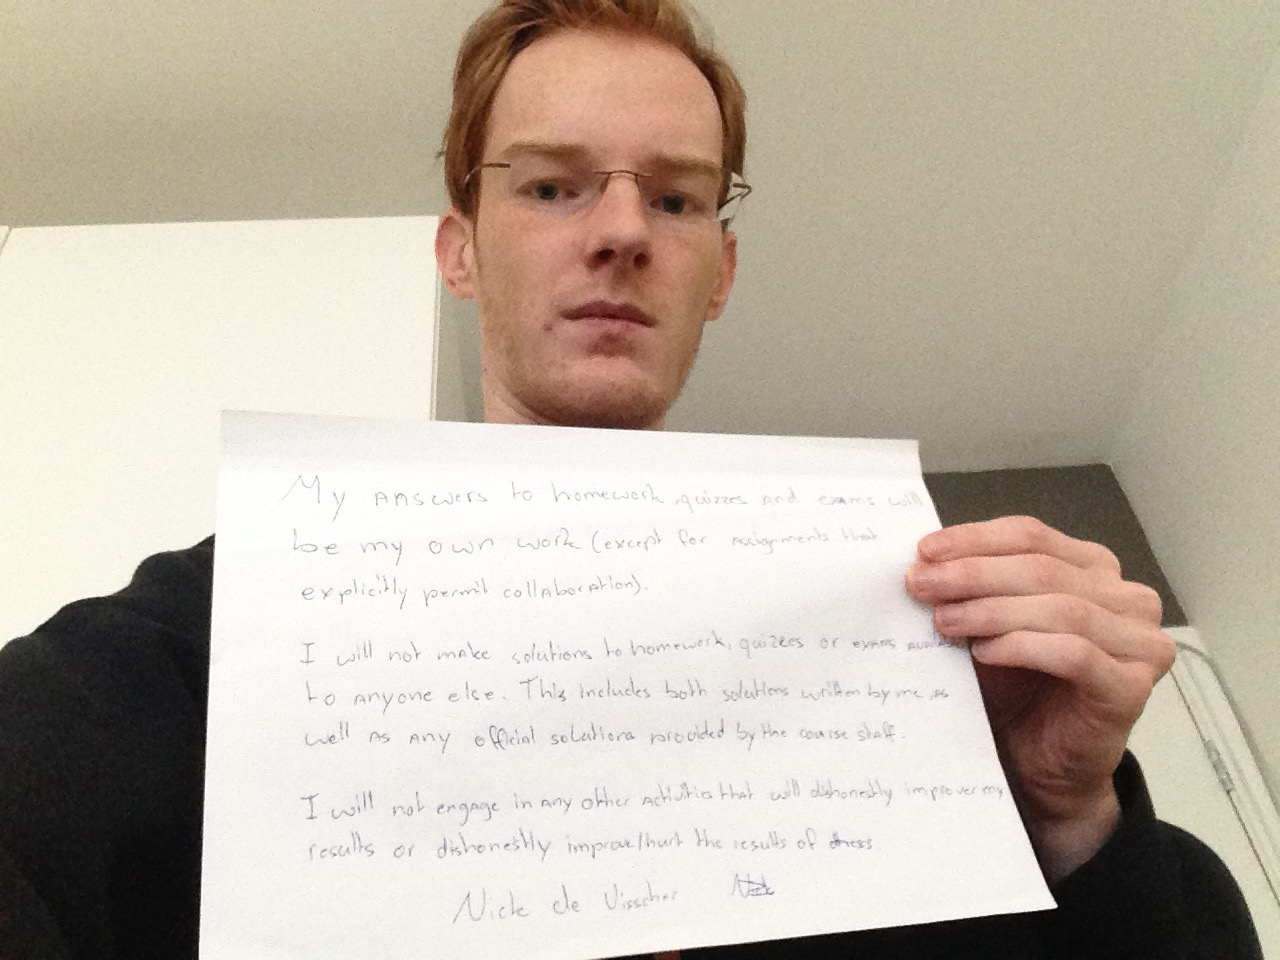 My answers to homework, quizzes and exams will
be my own work (except for assignments that
explicitly permit collaboration).
I will not make solutions to homework, quizzes or exams
to anyone else. This includes both solutions written by me, as
well as any official solutions provided by the course staff.
I will not engage in any other activities that will dishonestly improve my
results or dishonestly improve/hurt the results of
Nick de Visscher